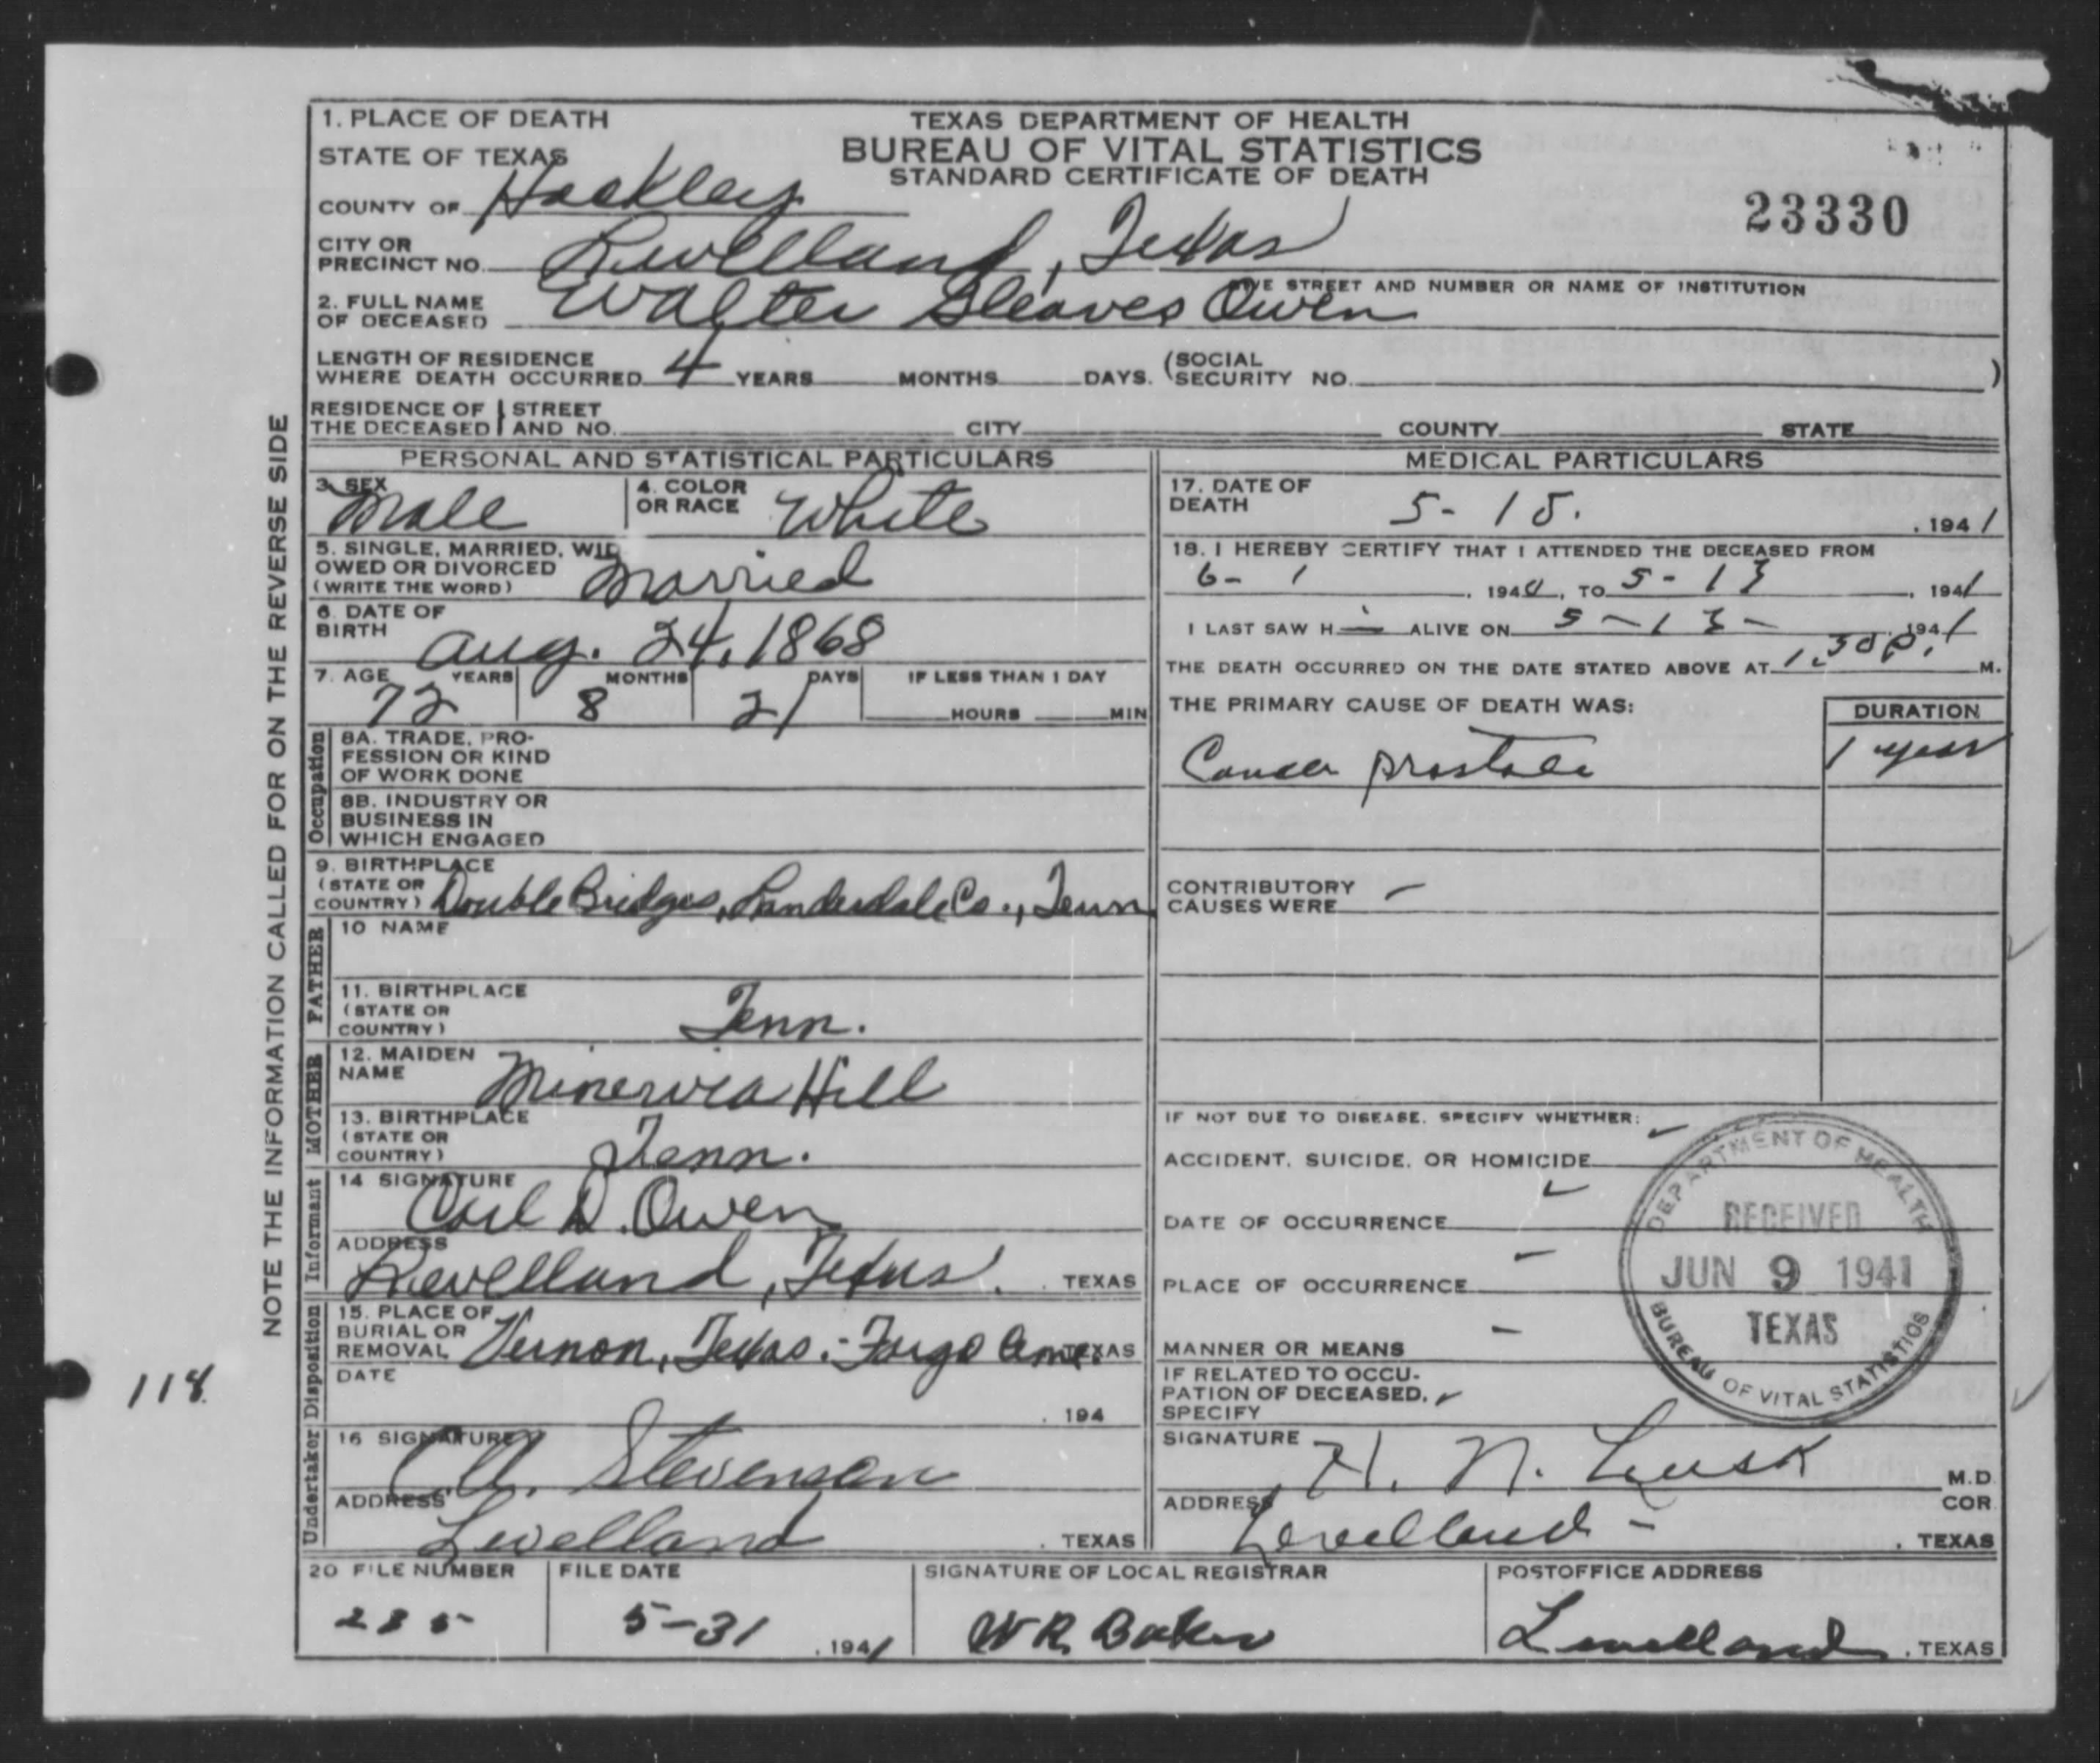 1. PLACE OF DEATH
STATE OF TEXAS
COUNTY OF Hockley
TEXAS DEPARTMENT OF HEALTH
BUREAU OF VITAL STATISTICS
STANDARD CERTIFICATE OF DEATH
23330
CITY OR PRECINCT NO. Levelland, Texas
GIVE STREET AND NUMBER OR NAME OF INSTITUTION
2. FULL NAME OF DECEASED Walter Gleaves Owen
LENGTH OF RESIDENCE WHERE DEATH OCCURRED 4 YEARS MONTHS DAYS. (SOCIAL SECURITY NO. )
RESIDENCE OF THE DECEASED STREET AND NO. CITY COUNTY STATE
NOTE THE INFORMATION CALLED FOR ON THE REVERSE SIDE
PERSONAL AND STATISTICAL PARTICULARS
3. SEX Male
4. COLOR OR RACE White
5. SINGLE, MARRIED, WIDOWED OR DIVORCED (WRITE THE WORD) Married
6. DATE OF BIRTH Aug. 24, 1868
7. AGE YEARS MONTHS DAYS IF LESS THAN 1 DAY
72 8 21 HOURS MIN
Occupation
8A. TRADE, PROFESSION OR KIND OF WORK DONE
8B. INDUSTRY OR BUSINESS IN WHICH ENGAGED
9. BIRTHPLACE (STATE OR COUNTRY) Double Bridges, Landerdale Co., Tenn
FATHER
10 NAME
11. BIRTHPLACE (STATE OR COUNTRY) Tenn.
MOTHER
12. MAIDEN NAME Minervia Hill
13. BIRTHPLACE (STATE OR COUNTRY) Tenn.
Informant
14 SIGNATURE Carl D. Owen
ADDRESS Levelland, Texas. TEXAS
Disposition
15. PLACE OF BURIAL OR REMOVAL Vernon, Texas - Fargo Cem. TEXAS
DATE , 194
Undertaker
16 SIGNATURE Stevenson
ADDRESS Levelland, TEXAS
MEDICAL PARTICULARS
17. DATE OF DEATH 5-15. , 1941
18. I HEREBY CERTIFY THAT I ATTENDED THE DECEASED FROM
6- 1 , 1940, TO 5-13 , 1941
I LAST SAW H i ALIVE ON 5-13- , 1941
THE DEATH OCCURRED ON THE DATE STATED ABOVE AT 1:30 P. M.
THE PRIMARY CAUSE OF DEATH WAS:
DURATION
Cancer prostate
1 year
CONTRIBUTORY CAUSES WERE –
IF NOT DUE TO DISEASE, SPECIFY WHETHER:
ACCIDENT, SUICIDE, OR HOMICIDE
DATE OF OCCURRENCE
PLACE OF OCCURRENCE –
MANNER OR MEANS –
IF RELATED TO OCCUPATION OF DECEASED, SPECIFY
SIGNATURE H. N. Lusk M.D. COR
ADDRESS Levelland - , TEXAS
DEPARTMENT OF HEALTH
RECEIVED
JUN 9 1941
TEXAS
BUREAU OF VITAL STATISTICS
118
20 FILE NUMBER FILE DATE SIGNATURE OF LOCAL REGISTRAR POSTOFFICE ADDRESS
285 5-31 , 1941 W R Baker Levelland, TEXAS